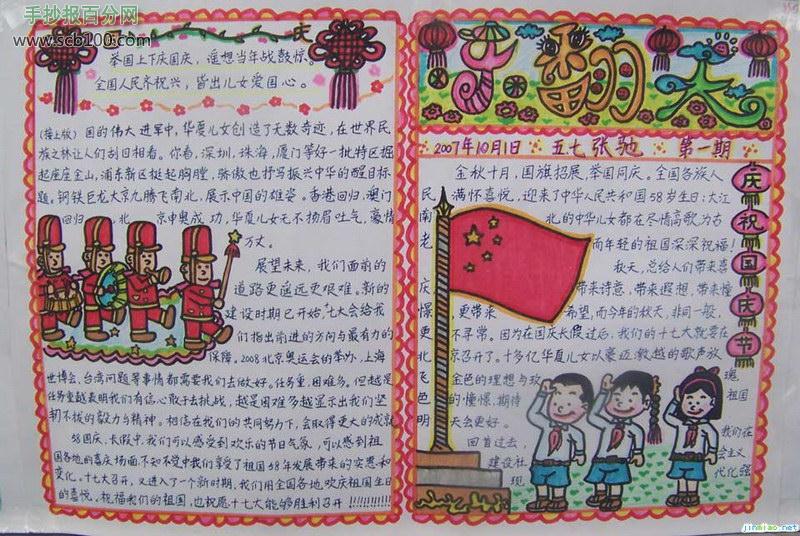 手抄报百分网
www.scb100.com
庆
举国上下庆国庆，遥想当年战鼓惊。
全国人民齐祝兴，皆出儿女爱国心。
(接上版) 国的伟大进军中，华夏儿女创造了无数奇迹，在世界民
族之林让人们刮目相看。你看，深圳，珠海，厦门等好一批特区掘
起座座金山，浦东新区挺起胸膛，骄傲也抒写振兴中华的醒目标
题。钢铁巨龙大京九腾飞南北，展示中国的雄姿。香港回归，澳门
回归，北京申奥成功，华夏儿女无不扬眉吐气，豪情
万丈。
展望未来，我们面前的
道路更遥远更艰难。新的
建设时期已开始，十七大会给我
们指出前进的方向与最有力的
保障。2008北京奥运会的举办，上海
世博会，台湾问题等事情都需要我们去做好。任务重，困难多。但越是
任务重越表明我们有信心敢于去挑战，越是困难多越显示出我们坚
韧不拔的毅力与精神。相信在我们的共同努力下，会取得更大的成就
58国庆，长假中，我们可以感受到欢乐的节日气氛，可以感到祖
国各地的喜庆场面，不知不觉中我们享受了祖国58年发展带来的实惠和
变化。十七大召开，又进入了一个新时期，我们用全国各地欢庆祖国生日
的喜悦，祝福我们的祖国，也祝愿十七大能够胜利召开!!!!!!!!!!!
翻天
2007年10月1日 五七张驰 第一期
庆祝国庆节
金秋十月，国旗招展，举国同庆。全国各族人
民满怀喜悦，迎来了中华人民共和国58岁生日；大江
南北的中华儿女都在尽情高歌为古
老而年轻的祖国深深祝福！
秋天，总给人们带来喜
庆带来诗意，带来遐想，带来憧
憬，更带来希望，而今年的秋天，非同一般，
更不寻常。因为在国庆长假过后，我们的十七大就要在
北京召开了。十多亿华夏儿女以豪迈激越的歌声放
飞金色的理想与玫瑰
色的憧憬，期待祖国
明天会更好。
回首过去，我们在
建设社会主义
现代化强
jinmiao.net